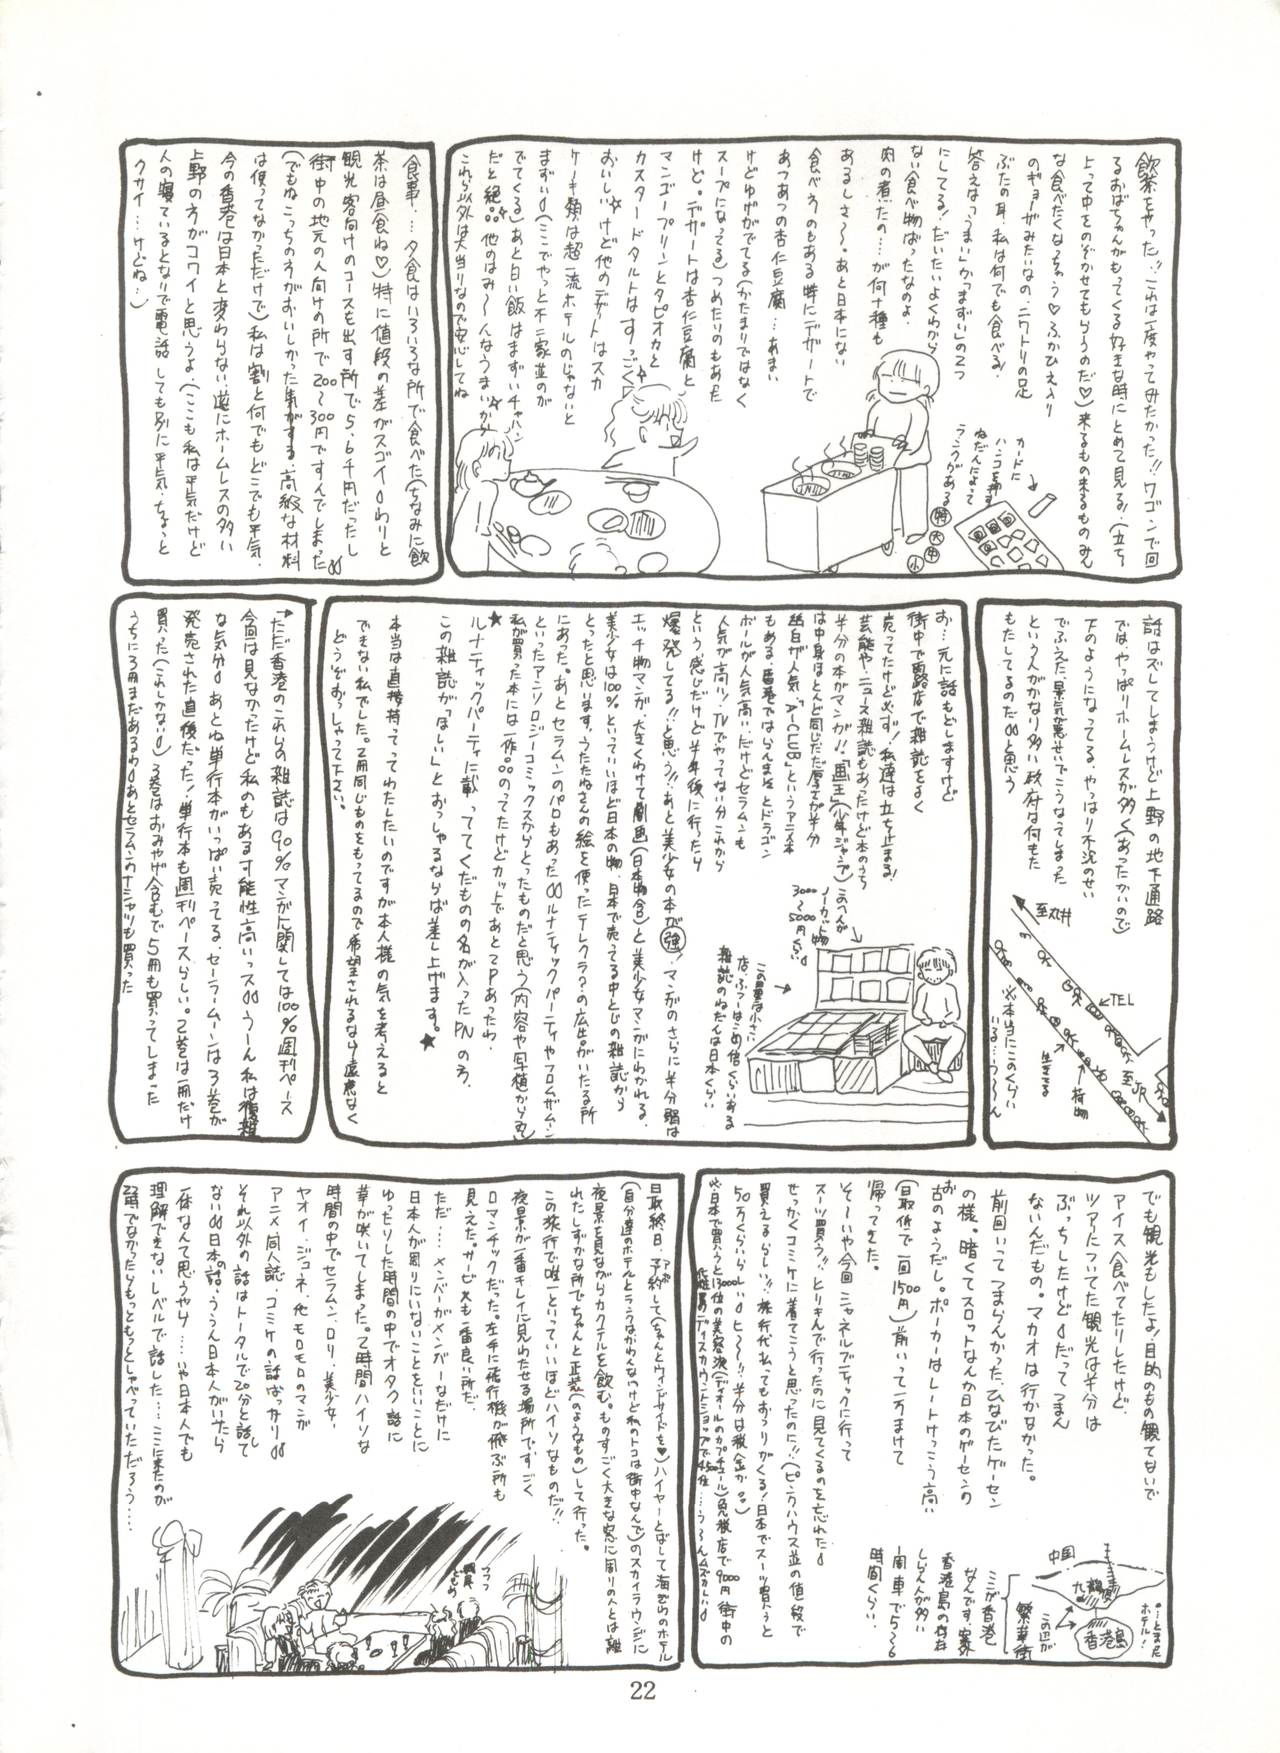 飲茶をやった!!これは一度やってみたかった!!ワゴンで回
るおばちゃんがもってくる好きな時にとめて見る!(立ち
上って中をのぞかせてもらうのだ♡)来るもの来るものみん
な食べたくなっちゃう♡ふかひえ入り
のギョーザみたいなの、ニワトリの足
ぶたの耳、私は何でも食べる!
答えは「うまい」か「まずい」の2つ
にしてる!だいたいよくわから
ない食べ物ばったなのよ、
肉の煮たの…が何十種も
あるしさ〜。あと日本にない
食べもののもある特にデザートで
あつあつの杏仁豆腐…あまい
けどゆげがでてる(かたまりではなく
スープになってる)つめたいのもあた
けど。デザートは杏仁豆腐と
マンゴープリンとタピオカと
カスタードタルトはすっごく
おいしい☆けど他のデザートはスカ
ケーキ類は超一流ホテルのじゃないと
まずい(ここでやっと不二家並のが
でてくる)あと白い飯はまずいチャハン
だと絶。他のはみ〜んなうまいから☆
これら以外は大当りなので安心してね
カードに
ハンコを押す
ねだんによって
ランクがある
特
大
中
小
食事…夕食はいろいろな所で食べた(ちなみに飲
茶は昼食ね♡)特に値段の差がスゴイわりと
観光客向けのコースを出す所で5、6千円だったし
街中の地元の人向けの所で200〜300円ですんでしまった
(でもねこっちの方がおいしかった事がする、高級な材料
は使ってなかっただけで)私は割と何でもどこでも平気、
今の香港は日本と変わらない、逆にホームレスの多い
上野の方がコワイと思うよ、(ここも私は平気だけど
人の寝ているとなりで電話しても別に平気、ちょっと
クサイ…けどね…)
話はズレてしまうけど上野の地下通路
では、やっぱりホームレスが多く(あったかいので)
下のようになってる、やっぱり不況のせい
でふえた、景気が悪いせいでこうなってしまった
という人がかなり多い政府は何をも
もたもたしてるのだと思う
至丸井
TEL
至JR
荷物
生きてる
※本当にこのくらい
いる…う〜ん
お…元に話もどしますけど
街中で露店で雑誌をよく
売ってたけど必ず!私達は立ち止まる!
芸能やニュース雑誌もあったけど本のうち
半分の本がマンガ!!「画王」(少年ジャンプ)
は中身ほとんど同じだだ厚さが半分
幽白が人気、「A-CLUB」というアニメ本
もある、香港ではらんまとドラゴン
ボールが人気高い、だけどセラムンも
人気が高い、TVでやってない分これから
という感じだけど半年後に行ったら
爆発してる!!と思う!!あと美少女の本が強!マンガのさらに半分弱は
エッチ物マンガ、大きくわけて劇画(日本物含)と美少女マンガにわかれる、
美少女は100%といっていいほど日本の物、日本で売ってる中とじの雑誌から
とったと思います、うたたねさんの絵を使ったテレクラ?の広告がいたる所
にあった。あとセラムンのパロもあったルナティックパーティやフロムザムーン
といったアンソロジーコミックスからとったものだと思う(内容や写植から見て)
私が買った本には一作のってたけどカットであと2Pあったわ
★ルナティックパーティに載っててくだものの名が入ったPNの方、
この雑誌が「ほしい」とおっしゃるならば差し上げます。★
本当は直接持ってってわたしたいのですが本人様の気を考えると
できない私でした。2冊同じものをもってるので希望されるなら遠慮なく
どうぞおっしゃって下さい。
このへんが
ノーカット物
3000〜5000円くらい
この露店は小さい
店、ふつーはこの倍くらいある
雑誌のねだんは日本くらい
★ただ香港のこれらの雑誌は90%マンガに関しては100%週刊ペース
今回は見なかったけど私のもある可能性高いっスううーん私は複雑
な気分、あとね単行本がいっぱい売ってる、セーラームーンは3巻が
発売された直後だった!単行本も週刊ペースらしい。2巻は一冊だけ
買った(これしかない)3巻はおみやげ含むで5冊も買ってしまった
うちに3冊まだあるわあとセラムンのTシャツも買った
でも観光もしたよ!目的のもの観てないで
アイス食べてたりしたけど、
ツアーについてた観光は半分は
ぶっちしたけどだってつまん
ないんだもの。マカオは行かなかった。
前回いってつまらんかった、ひなびたゲーセン
の様。暗くてスロットなんか日本のゲーセンの
お古のようだし。ポーカーはレートけっこう高い
(最低で一回1500円)前いって一万まけて
帰ってきた。
そ〜いや今回シャネルブティックに行って
スーツ買う!!とりきんで行ったのに見てくるのを忘れた
せっかくコミケに着てこうと思ったのに!!(ピンクハウス並の値段で
買えるらしい!!旅行代払ってもおつりがくる!日本でスーツ買うと
50万くらいらしいヒ〜!!半分は税金か。)
※日本で買うと13000位の美容液(ディオールのカプチュール)免税店で9000円街中の
化粧品のディスカウントショップで4500位…う〜んムズかしい
中国
九龍
香港島
この辺が
繁華街
・=とまった
ホテル!
ここが香港
なんです、家
香港島の方は
しらん人が多い
一周車で5〜6
時間くらい
最終日、予約して(ちゃんとウィンドサイドを♥)ハイヤーとばして海ぞいのホテル
(自分達のホテルとランクはかわんないけど私のトコは街中なんで)のスカイラウンジに
夜景を見ながらカクテルを飲む。ものすごく大きな窓に周りの人とは離
れたしずかな所でちゃんと正装(のようなもの)して行った。
この旅行で唯一といっていいほどハイソなものだ!!
夜景が一番キレイに見わたせる場所ですごく
ロマンチックだった。左手に飛行機が飛ぶ所も
見えた。サービスも一番良い所だ、
ただ…メンバーがメンバーなだけに
日本人が周りにいないことをいいことに
ゆったりした時間の中でオタク話に
草が咲いてしまった。2時間ハイソな
時間の中でセラムン、ロリ、美少女、
ヤオイ、ジュネ、他モロモロのマンガ
アニメ同人誌、コミケの話ばっかり
それ以外の話はトータルで20分と話して
ない日本の話、ううん日本人がいたら
一体なんて思うやら…いや日本人でも
理解できないレベルで話した…ここに来たのが
2時でなかったらもっともっとしゃべっていただろう…
22